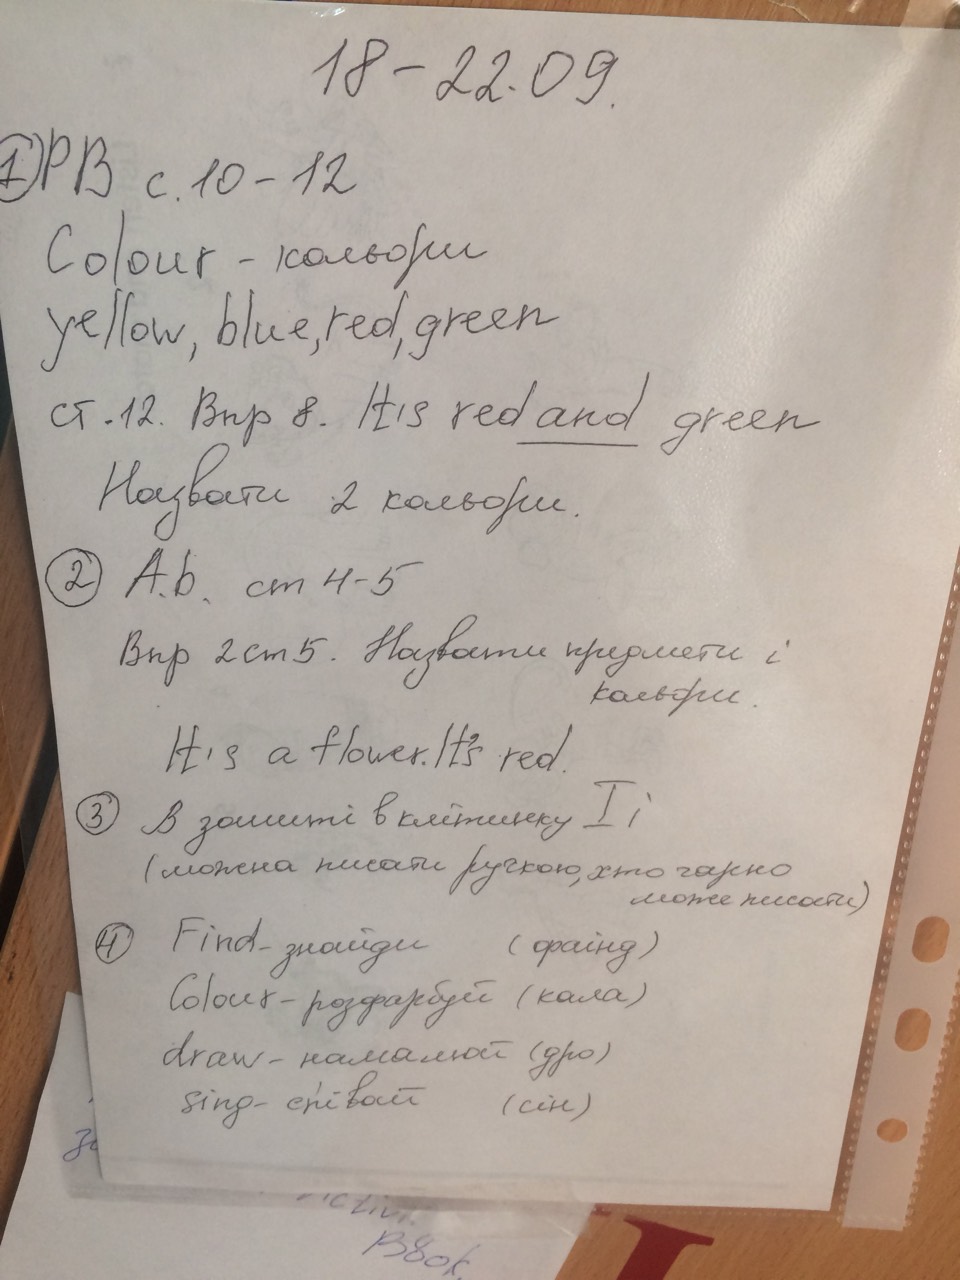 18-22.09.
① PB с. 10-12
Colour - кольори
yellow, blue, red, green
ст. 12. Впр 8. It's red and green
Назвати 2 кольори.
② A.b. ст 4-5
Впр 2 ст 5. Назвати предмети і
кольори.
It's a flower. It's red.
③ В зошиті в клітинку I i
(можна писати ручкою, хто гарно
може писати)
④ Find - знайди (фаінд)
Colour - розфарбуй (кала)
draw - намалюй (дро)
sing - співай (сін)